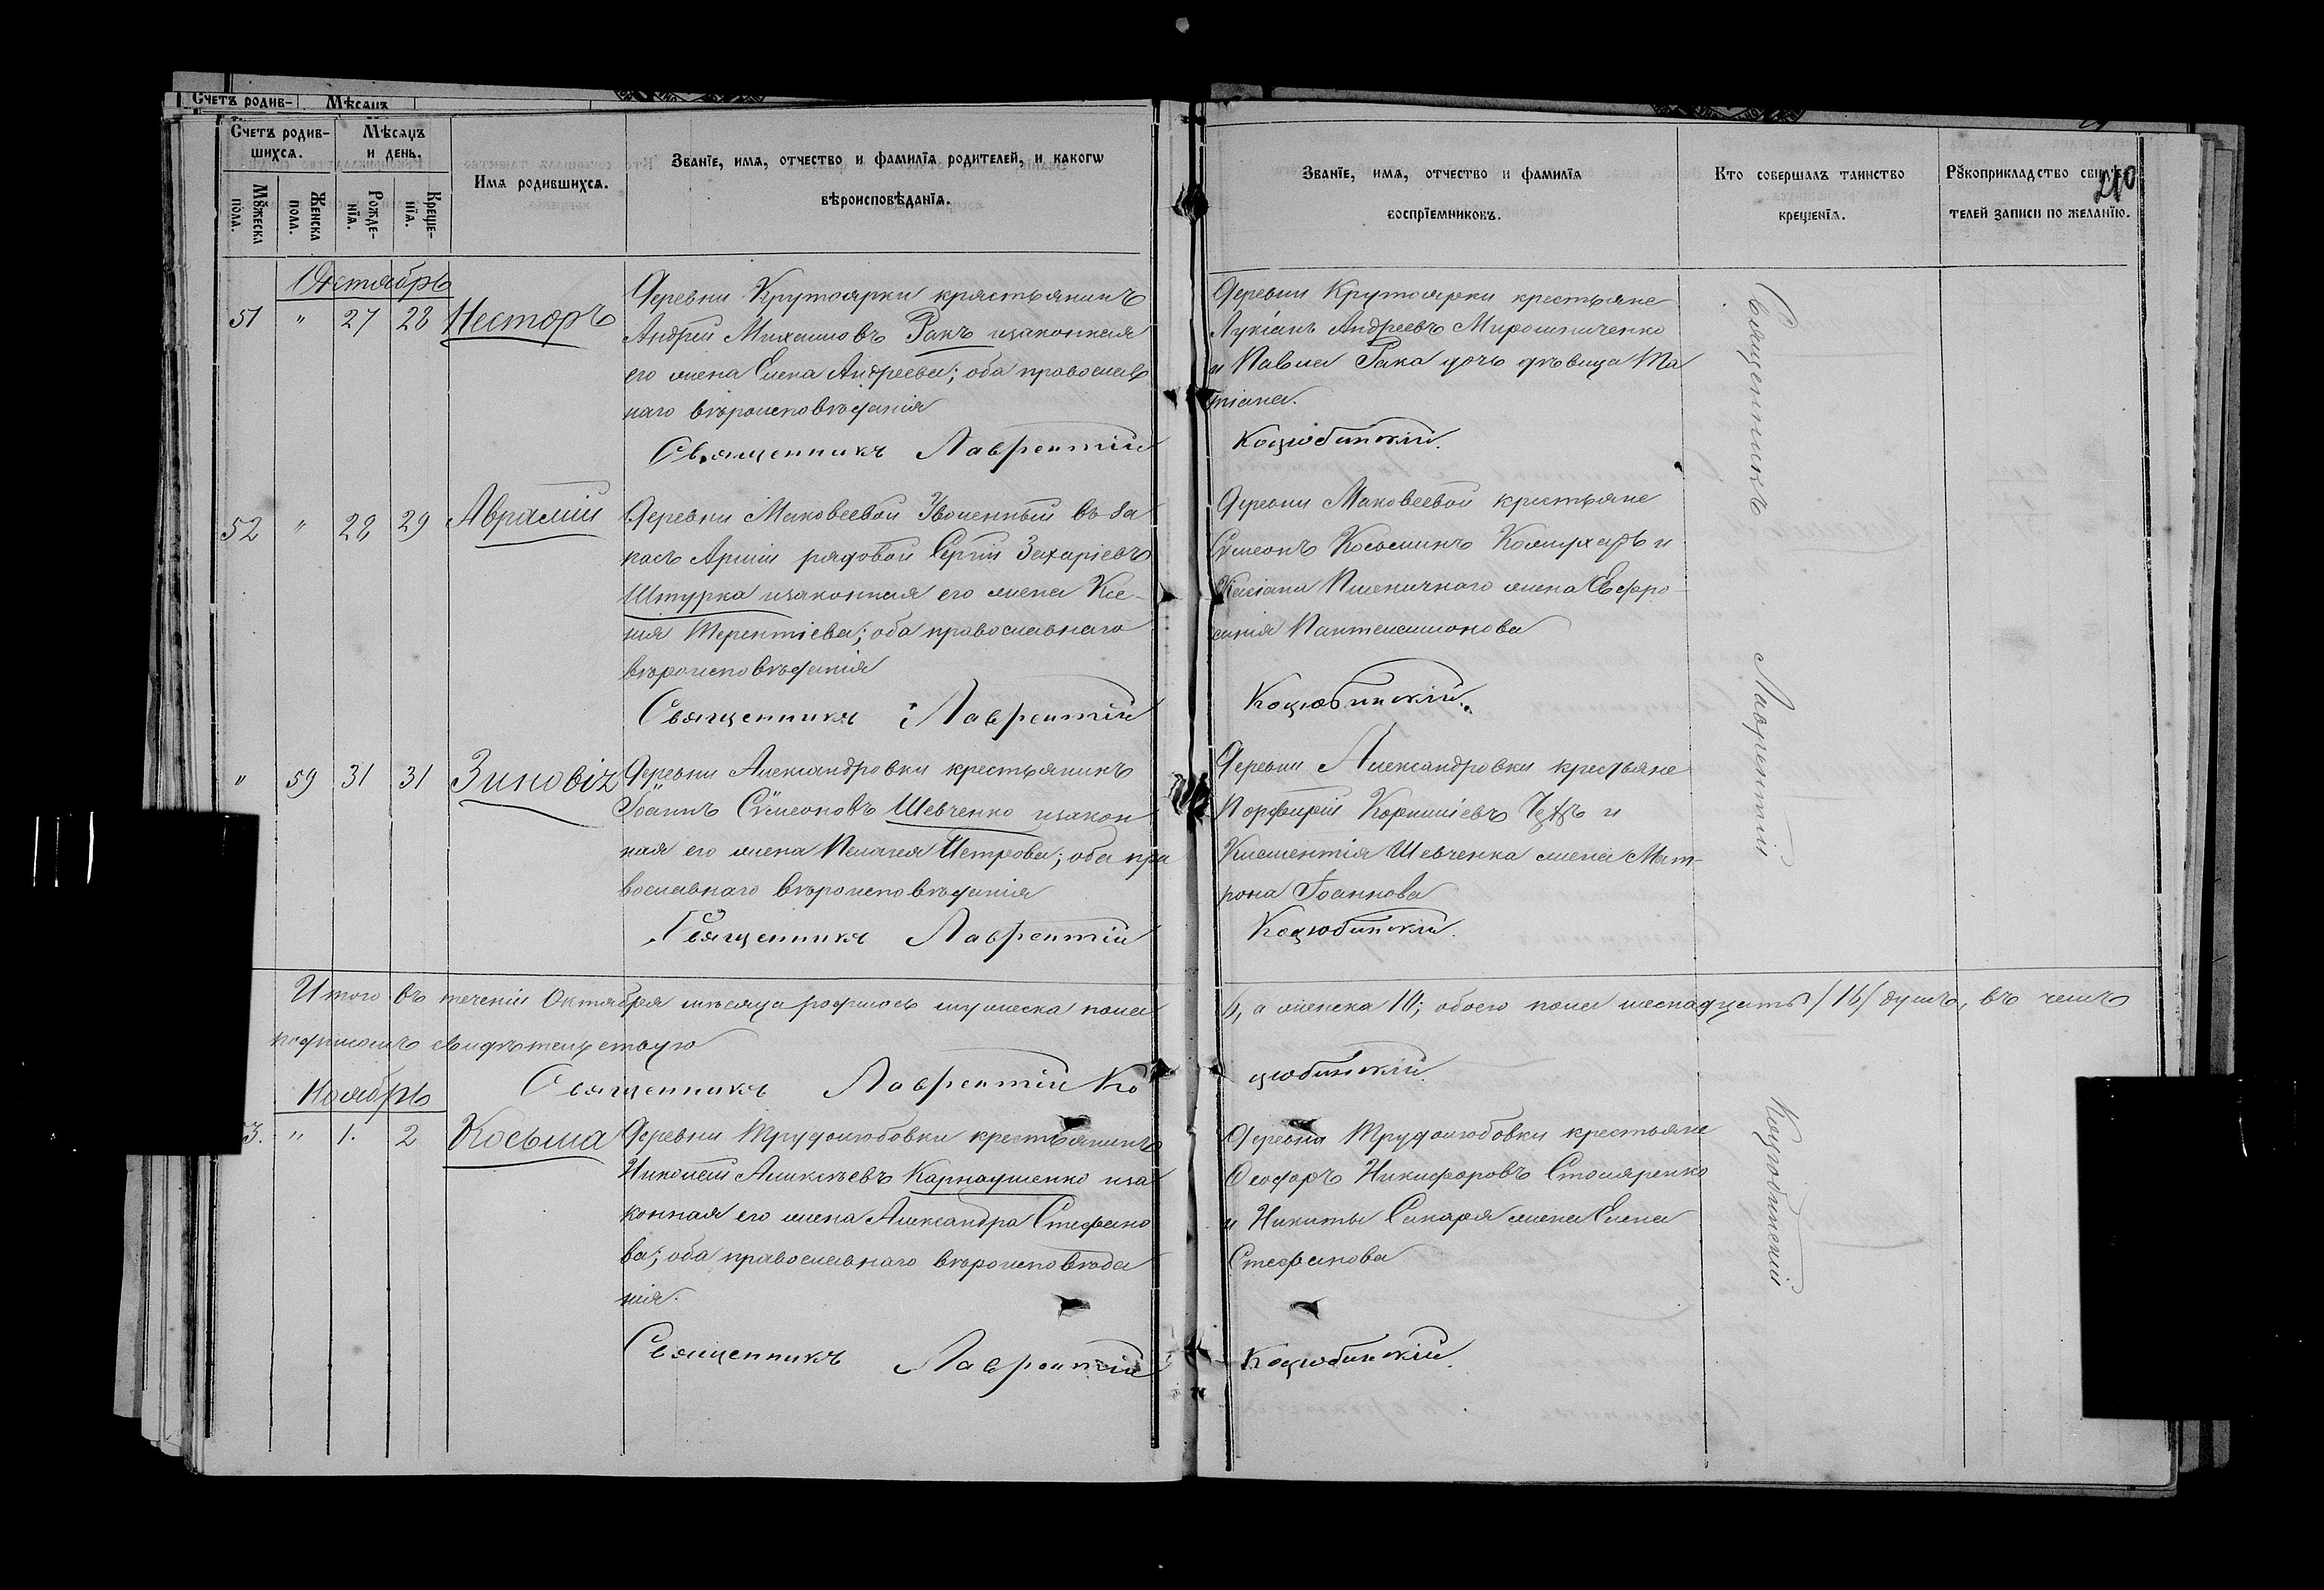 Счетъ родив- Мѣсяцъ
Счетъ родив-
шихся.
Мꙋжеска
пола.
Женска
пола.
Мѣсяцъ
и день.
Рожде-
нїя.
Креще-
нїя.
Имя родившихся.
Званїе, имя, отчество и фамилїя родителей, и какогѡ
вѣроисповѣданїя.
Званїе, имя, отчество и фамилїя
воспрїемниковъ.
Кто совершалъ таинство
крещенїя.
Рꙋкоприкладство свидѣ-
телей записи по желанїю.
210
Октябрь
51 " 27 28 Несторъ
Деревни Крутоярки крястьянинъ
Андрей Михаиловъ Ракъ изаконная
его жена Елена Андреева; оба православ
наго вѣроисповѣданія
Священникъ Лаврентій
Деревни Крутоярки крестьяне
Лукіанъ Андреевъ Мирошниченко
и Павла Рака дочь дѣвица Та
тіана.
Коцюбинскій.
52 " 28 29 Аврамій
Деревни Маковеевой Уволенный въ за
пасъ Арміи рядовой Сергій Захаріевъ
Штурка изаконная его жена Ксе-
нія Терентіева; оба православнаго
вѣроисповѣданія
Священникъ Лаврентій
Деревни Маковеевой крестьяне
Сѵмеонъ Косьминъ и
Пшеничнаго жена Евфро-
синія Пантелеимонова
Коцюбинскій.
" 59 31 31 Зиновія
Деревни Александровки крестьянинъ
Іоаннъ Сѵмеоновъ Шевченко изакон
ная его жена Пелагея Петрова; оба пра
вославнаго вѣроисповѣданія
Священникъ Лаврентій
Деревни Александровки крестьяне
Порфирій Корниліевъ и
Климентія Шевченка жена Мат-
рона Іоаннова
Коцюбинскій.
Итого въ теченіи Октября мѣсяца родилось мужеска пола
6, а женска 10; обоего пола шеснадцать /16/ душъ, въ чемъ
подписомъ свидѣтельствую
Священникъ Лаврентій Ко
цюбинскій.
Ноябрь
3. " 1. 2 Косьма
Деревни Трудолюбовки крестьянинъ
Николай Алексѣевъ Карнаушенко иза
конная его жена Александра Стефано
ва; оба православнаго вѣроисповѣда
нія.
Священникъ Лаврентій
Деревни Трудолюбовки крестьяне
Феодоръ Никифоровъ Столяренко
и Никиты Сикаря жена Елена
Стефанова
Коцюбинскій.
Священникъ
Лаврентій
Коцюбинскій